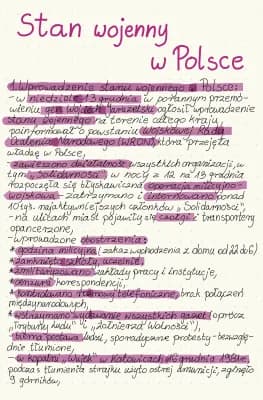 Stan wojenny
w Polsce
1. Wprowadzenie stanu wojennego w Polsce:
- w niedzielę 13 grudnia w porannym przemó-
wieniu gen. Wojciech Jaruzelski ogłosił wprowadzenie
stanu wojennego na terenie całego kraju,
poinformował o powstaniu Wojskowej Rady
Ocalenia Narodowego (WRON), która przejęła
władzę w Polsce,
- zawieszono działalność wszystkich organizacji, w
tym „Solidarności" w nocy z 12 na 13 grudnia
rozpoczęła się błyskawiczna operacja milicyjno-
wojskowa - zatrzymano i internowano ponad
najaktywniejszych członków „Solidarności",
- na ulicach miast pojawiły się czołgi i transportery
opancerzone,
- wprowadzono obostrzenia:
* godzina milicyjna (zakaz wychodzenia z domu od 22 do 6)
* zamknięto szkoły, uczelnie
* zmilitaryzowano zakłady pracy i instytucje,
* cenzura korespondencji,
* rozmowy telefoniczne, brak połączeń
międzynarodowych,
* wstrzymano wydawanie wszystkich gazet (oprócz
„Trybuny Ludu" i „Żołnierza Wolności"),
- bierna postawa ludzi, sporadyczne protesty - bezwzglę-
dnie tłumione,
- w kopalni „Wujek" w Katowicach 16 grudnia 1981r.
podczas tłumienia strajku użyto ostrej amunicji, zginęło
9 górników,